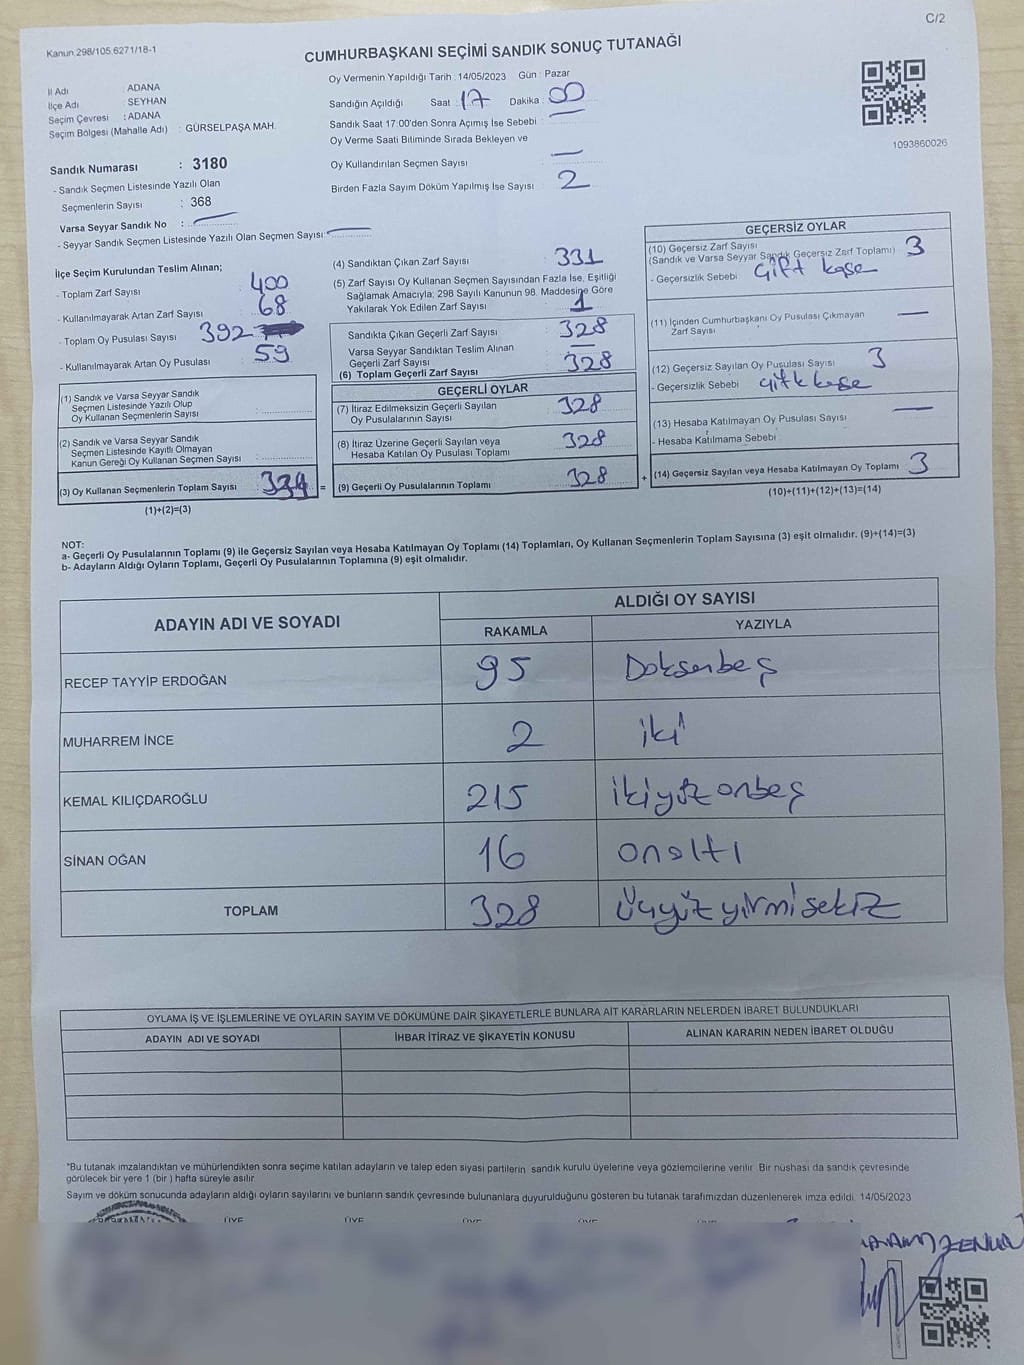 C/2
Kanun 298/105 6271/18-1
CUMHURBAŞKANI SEÇİMİ SANDIK SONUÇ TUTANAĞI
İl Adı : ADANA
İlçe Adı : SEYHAN
Seçim Çevresi : ADANA
Seçim Bölgesi (Mahalle Adı) : GÜRSELPAŞA MAH.
Sandık Numarası : 3180
- Sandık Seçmen Listesinde Yazılı Olan
Seçmenlerin Sayısı : 368
Varsa Seyyar Sandık No :
- Seyyar Sandık Seçmen Listesinde Yazılı Olan Seçmen Sayısı:
Oy Vermenin Yapıldığı Tarih : 14/05/2023 Gün : Pazar
Sandığın Açıldığı Saat : 17 Dakika : 00
Sandık Saat 17:00'den Sonra Açımış İse Sebebi :
Oy Verme Saati Bitiminde Sırada Bekleyen ve
Oy Kullandırılan Seçmen Sayısı :
Birden Fazla Sayım Döküm Yapılmış İse Sayısı : 2
1093860026
İlçe Seçim Kurulundan Teslim Alınan;
- Toplam Zarf Sayısı : 400
- Kullanılmayarak Artan Zarf Sayısı : 68
- Toplam Oy Pusulası Sayısı : 392
- Kullanılmayarak Artan Oy Pusulası : 59
(1) Sandık ve Varsa Seyyar Sandık
Seçmen Listesinde Yazılı Olup
Oy Kullanan Seçmenlerin Sayısı :
(2) Sandık ve Varsa Seyyar Sandık
Seçmen Listesinde Kayıtlı Olmayan
Kanun Gereği Oy Kullanan Seçmen Sayısı :
(3) Oy Kullanan Seçmenlerin Toplam Sayısı =
(1)+(2)=(3)
(4) Sandıktan Çıkan Zarf Sayısı : 331
(5) Zarf Sayısı Oy Kullanan Seçmen Sayısından Fazla İse, Eşitliği
Sağlamak Amacıyla, 298 Sayılı Kanunun 98. Maddesine Göre
Yakılarak Yok Edilen Zarf Sayısı : 1
Sandıkta Çıkan Geçerli Zarf Sayısı : 328
Varsa Seyyar Sandıktan Teslim Alınan
Geçerli Zarf Sayısı :
(6) Toplam Geçerli Zarf Sayısı : 328
GEÇERLİ OYLAR
(7) İtiraz Edilmeksizin Geçerli Sayılan
Oy Pusulalarının Sayısı : 328
(8) İtiraz Üzerine Geçerli Sayılan veya
Hesaba Katılan Oy Pusulası Toplamı : 328
(9) Geçerli Oy Pusulalarının Toplamı : 328 +
GEÇERSİZ OYLAR
(10) Geçersiz Zarf Sayısı
(Sandık ve Varsa Seyyar Sandık Geçersiz Zarf Toplamı) 3
- Geçersizlik Sebebi : Çift kaşe
(11) İçinden Cumhurbaşkanı Oy Pusulası Çıkmayan
Zarf Sayısı
(12) Geçersiz Sayılan Oy Pusulası Sayısı : 3
- Geçersizlik Sebebi : çift kaşe
(13) Hesaba Katılmayan Oy Pusulası Sayısı :
- Hesaba Katılmama Sebebi :
(14) Geçersiz Sayılan veya Hesaba Katılmayan Oy Toplamı : 3
(10)+(11)+(12)+(13)=(14)
NOT:
a- Geçerli Oy Pusulalarının Toplamı (9) ile Geçersiz Sayılan veya Hesaba Katılmayan Oy Toplamı (14) Toplamları, Oy Kullanan Seçmenlerin Toplam Sayısına (3) eşit olmalıdır. (9)+(14)=(3)
b- Adayların Aldığı Oyların Toplamı, Geçerli Oy Pusulalarının Toplamına (9) eşit olmalıdır.
ADAYIN ADI VE SOYADI ALDIĞI OY SAYISI
RAKAMLA YAZIYLA
RECEP TAYYİP ERDOĞAN 95 Doksanbeş
MUHARREM İNCE 2 iki
KEMAL KILIÇDAROĞLU 215 ikiyüzonbeş
SİNAN OĞAN 16 onaltı
TOPLAM 328 Üçyüzyirmisekiz
OYLAMA İŞ VE İŞLEMLERİNE VE OYLARIN SAYIM VE DÖKÜMÜNE DAİR ŞİKAYETLERLE BUNLARA AİT KARARLARIN NELERDEN İBARET BULUNDUKLARI
ADAYIN ADI VE SOYADI İHBAR İTİRAZ VE ŞİKAYETİN KONUSU ALINAN KARARIN NEDEN İBARET OLDUĞU
*Bu tutanak imzalandıktan ve mühürlendikten sonra seçime katılan adayların ve talep eden siyasi partilerin sandık kurulu üyelerine veya gözlemcilerine verilir. Bir nüshası da sandık çevresinde
görülecek bir yere 1 (bir) hafta süreyle asılır.
Sayım ve döküm sonucunda adayların aldığı oyların sayılarını ve bunların sandık çevresinde bulunanlara duyurulduğunu gösteren bu tutanak tarafımızdan düzenlenerek imza edildi. 14/05/2023
ÜYE ÜYE ÜYE ÜYE